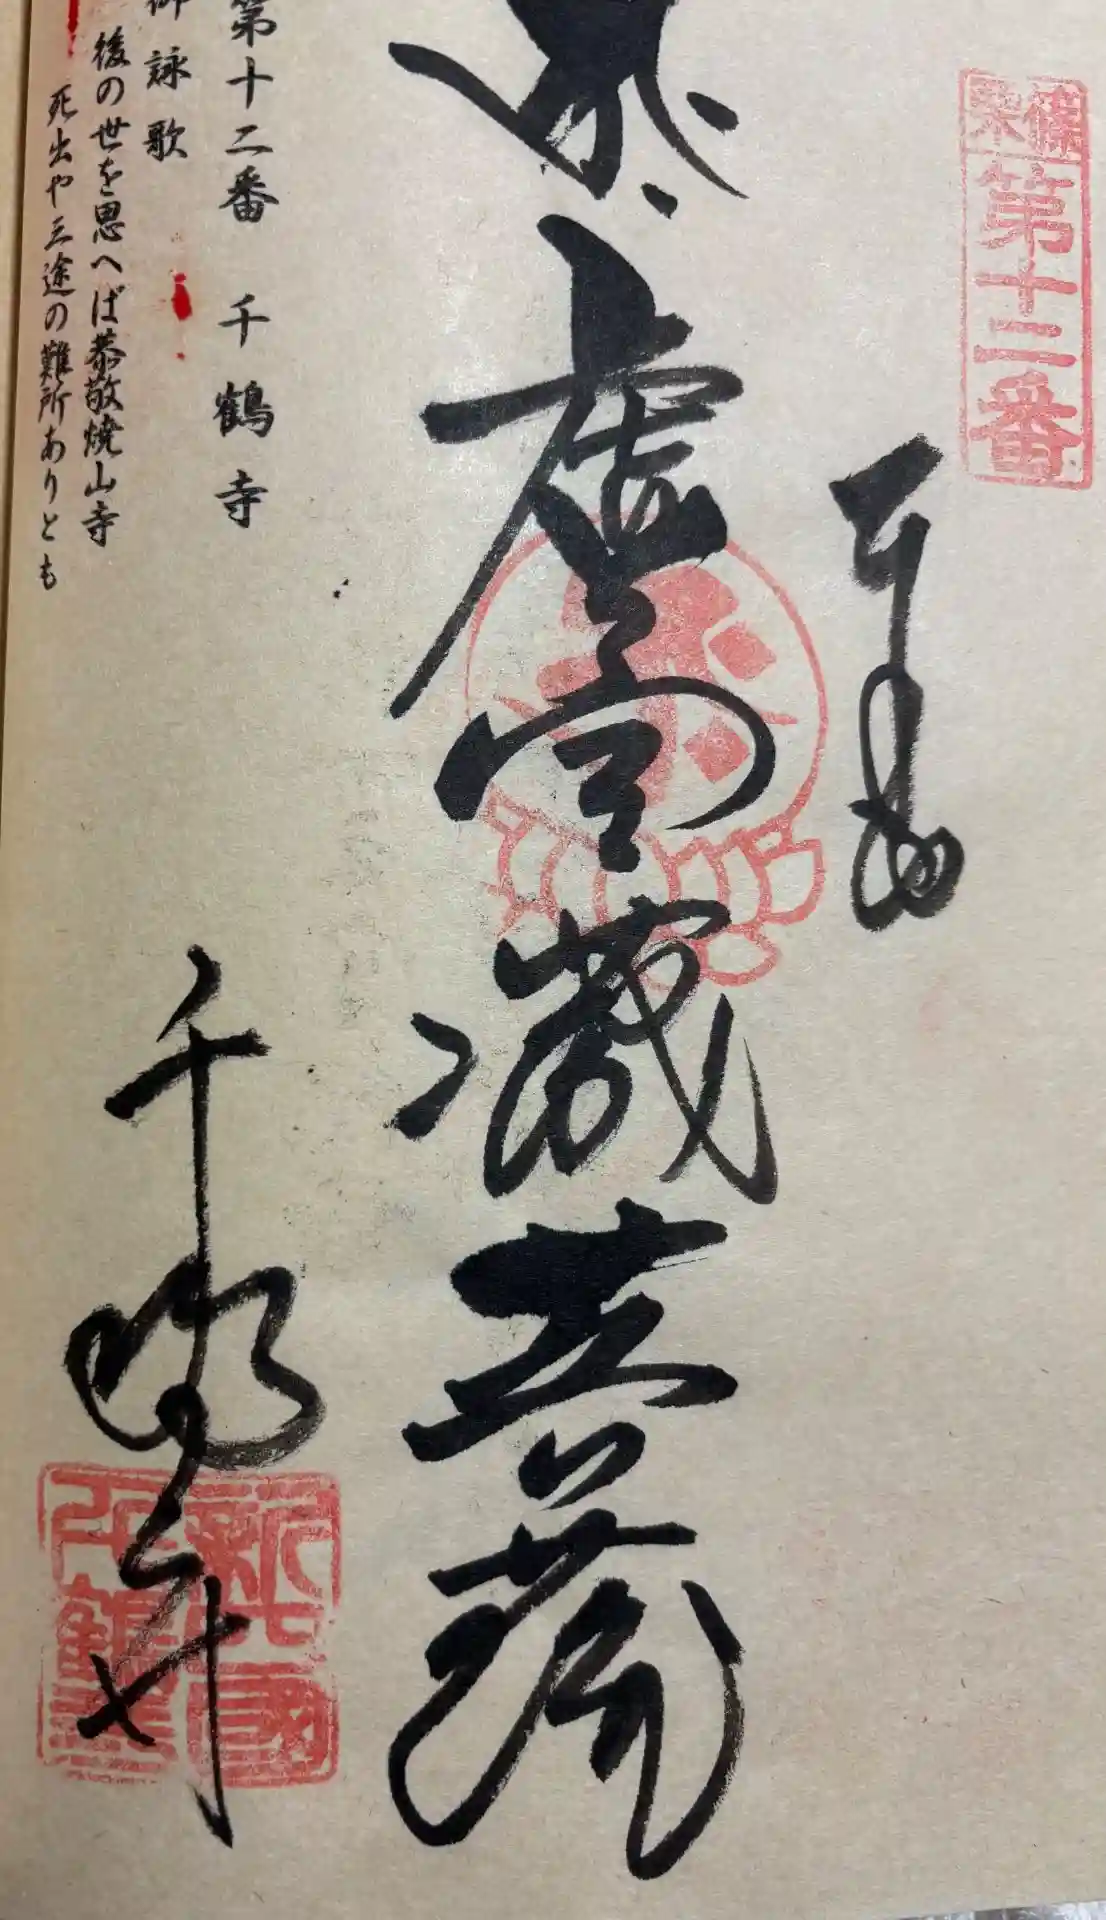 篠栗
第十二番
奉拝
虚空蔵菩薩
千鶴寺
第十二番 千鶴寺
御詠歌
後の世を思へば恭敬焼山寺
死出や三途の難所ありとも